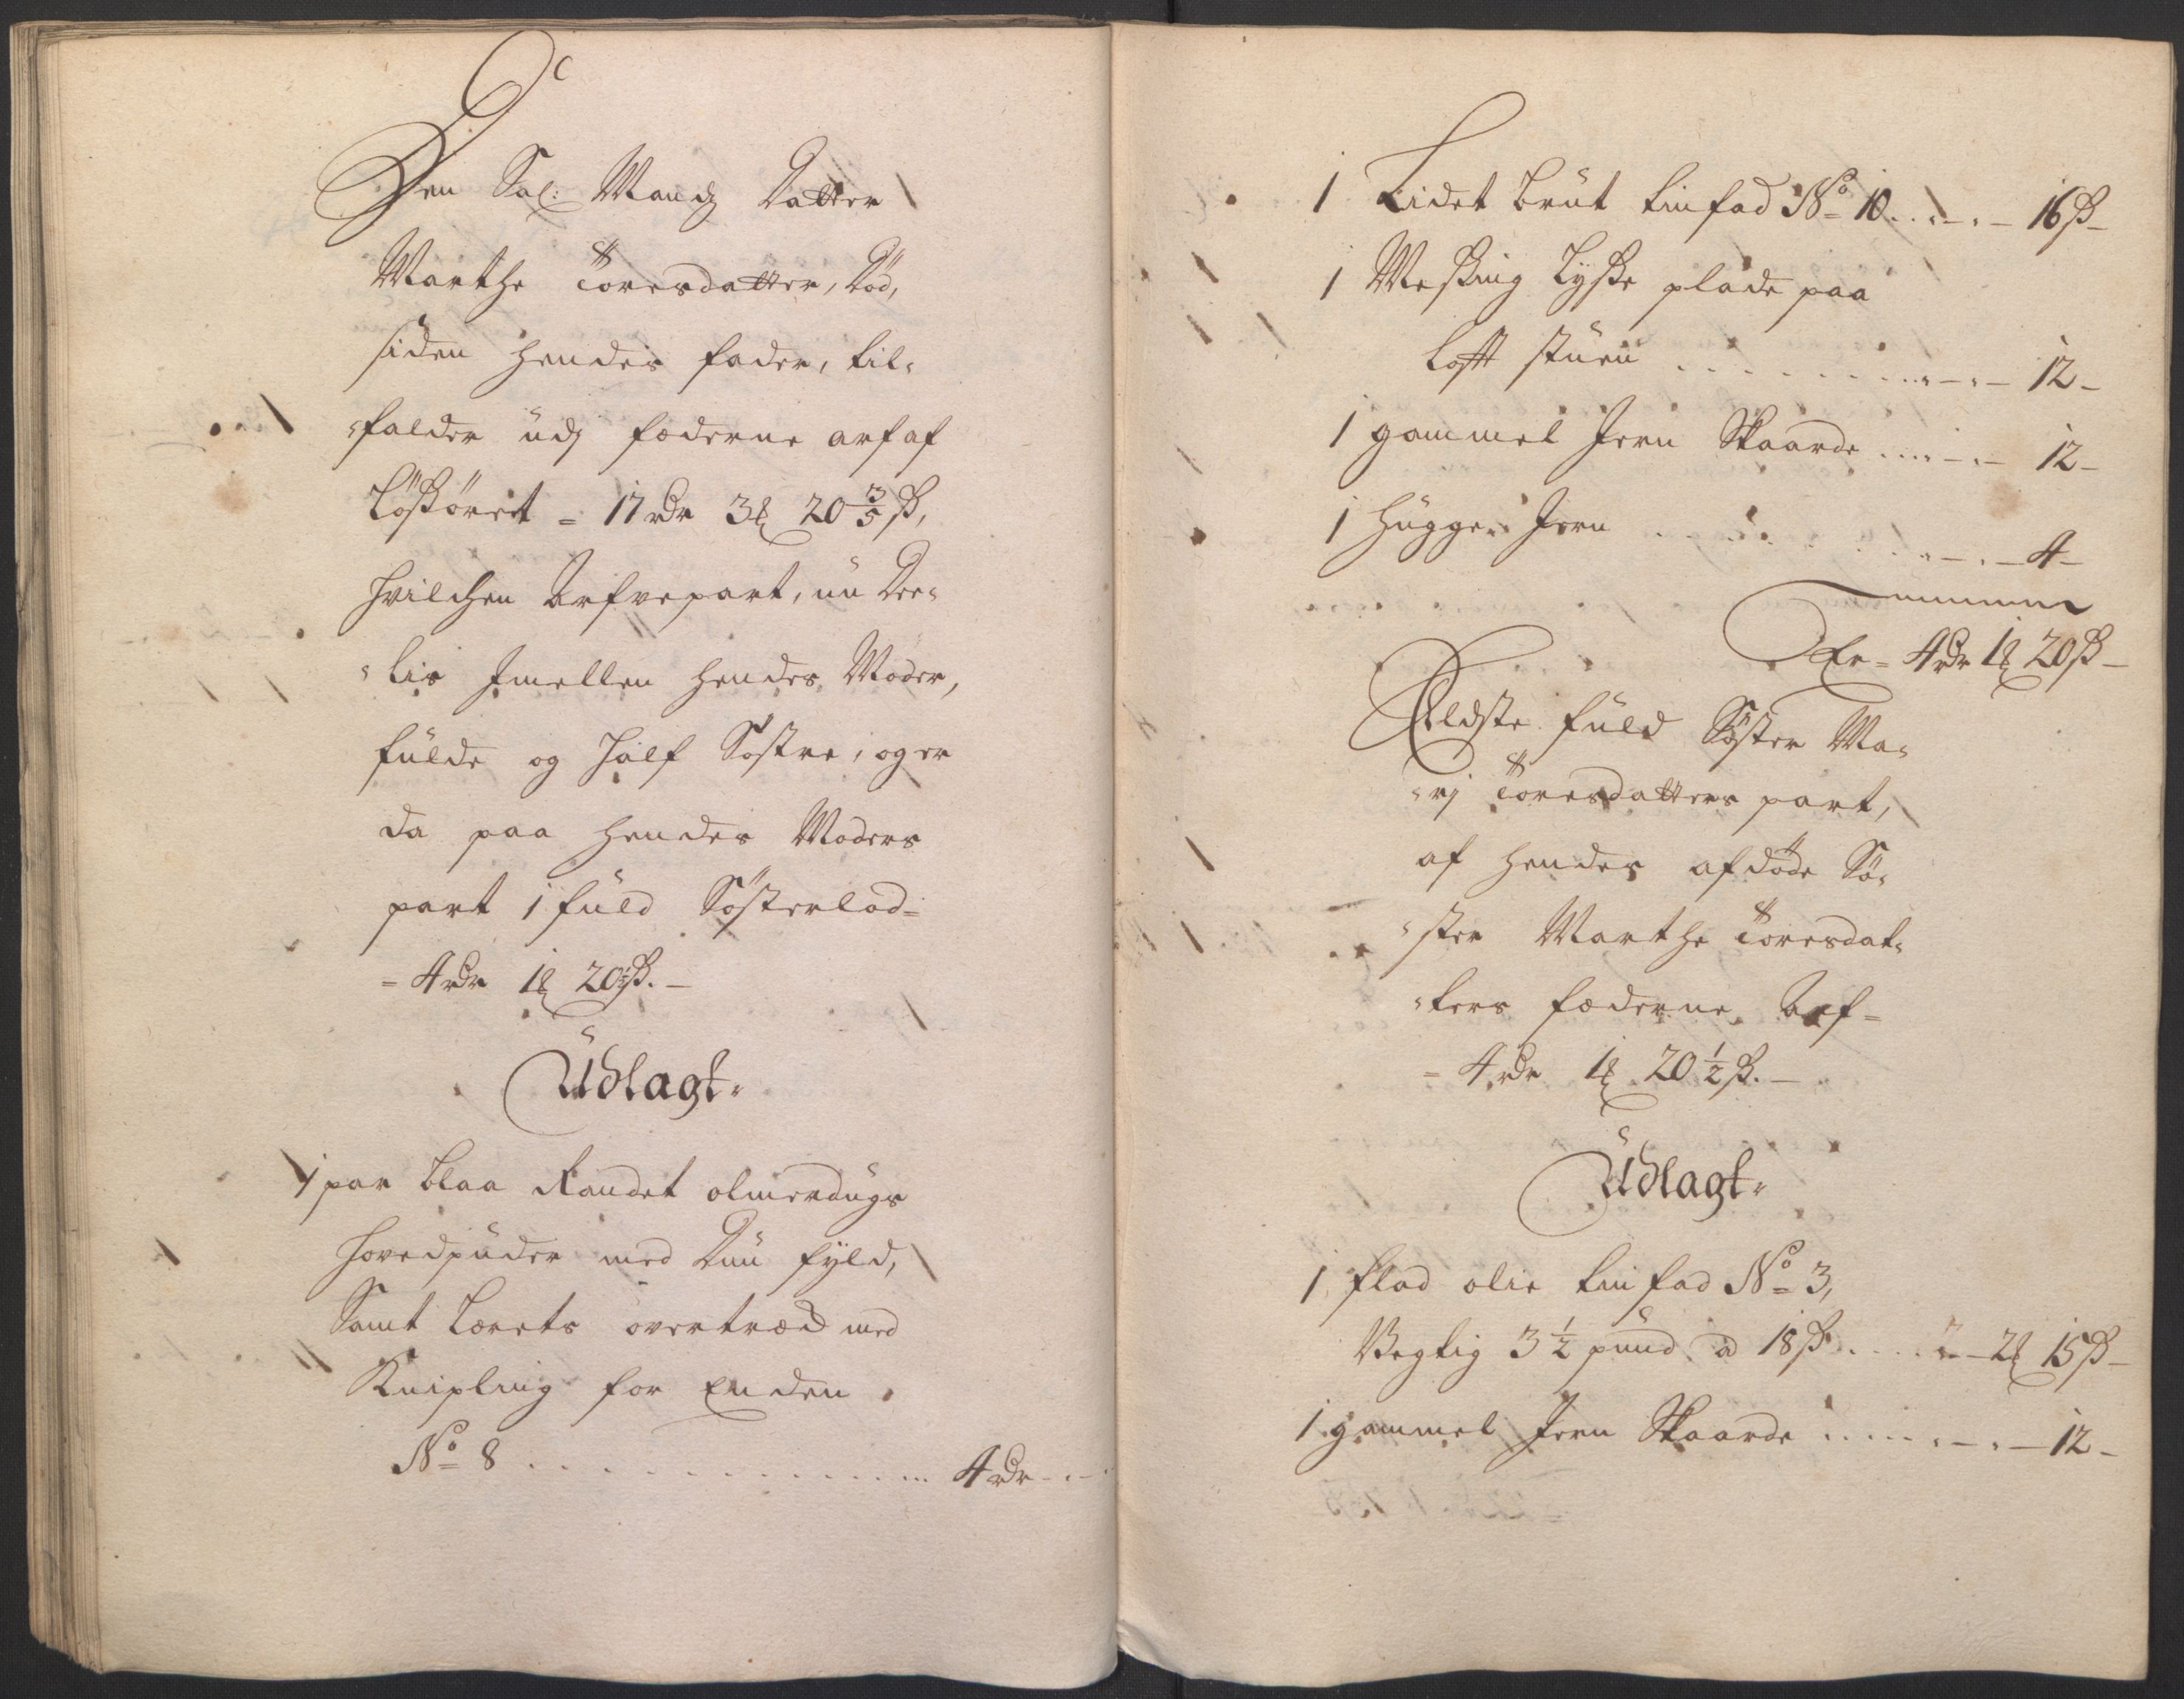 Den Sal: Mandz Datter
Marthe Törresdatter, Död,
siden hendes fader, til-
falder udj fæderne arf af
Löskörret = 17 rdr 3 ₰ 20 3/5 ß,
hvilchen Arfvepart, nu Dee-
lis Jmellen hendes Moder,
fulde og Half Söstre, og er
da paa hendes Moders
part 1 fuld Söster lod =
= 4 rdr 1 ₰ 20½ ß. –
Udlagt.
1 par blaa Randet olmerdugs
hovedpuder med Duu fyld,
Samt Lærets overtræd med
Knipling for Enden
No 8 . . . . . . . . . . . . 4 rdr - . -
1 Lidet brut tinfad No 10 . . . - . - 16 ß -
1 Messing Lysse plade paa
Loft stuen . . . . . . . . . . - . - 12 -
1 gammel Jern Skaarde . . . . - . - 12 -
1 hugge Jern . . . . . . . . - . - 4 -
Er = 4 rdr 1 ₰ 20 ß -
Eldste fuld Söster Ma-
rj Törresdatters part,
af hendes afdöde Sö-
ster Marthe Törresdat-
ters fæderne Arf =
= 4 rdr 1 ₰ 20 ½ ß. –
Udlagt.
1 flad olie tin fad No 3,
Vegtig 3 ½ pund à 18 ß . . . . - 2 ₰ 15 ß -
1 gammel Jern Skaarde . . . . . - . - 12 -